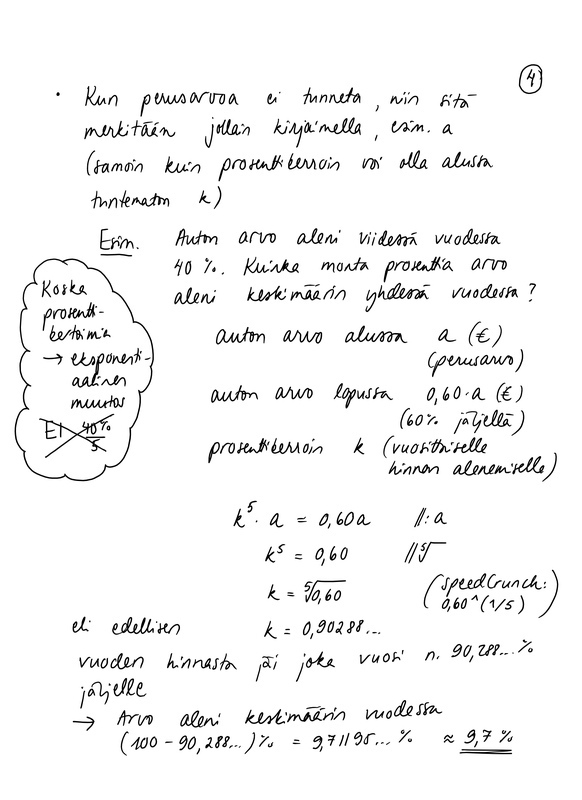 4
• Kun perusarvoa ei tunneta, niin sitä
merkitään jollain kirjaimella, esim. a
(samoin kuin prosenttikerroin voi olla alussa
tuntematon k)
Esim. Auton arvo aleni viidessä vuodessa
40 %. Kuinka monta prosenttia arvo
aleni keskimäärin yhdessä vuodessa?
Koska
prosentti-
kertoimia
→ eksponenti-
aalinen
muutos
EI 40 % / 5
auton arvo alussa a (€)
(perusarvo)
auton arvo lopussa 0,60·a (€)
(60% jäljellä)
prosenttikerroin k (vuosittaiselle
hinnan alenemiselle)
k⁵· a = 0,60a ||: a
k⁵ = 0,60 || ⁵√
k = ⁵√0,60 (SpeedCrunch:
0,60^(1/5))
k = 0,90288...
eli edellisen
vuoden hinnasta jäi joka vuosi n. 90,288...%
jäljelle
→ Arvo aleni keskimäärin vuodessa
(100 - 90,288...)% = 9,71195... % ≈ 9,7 %